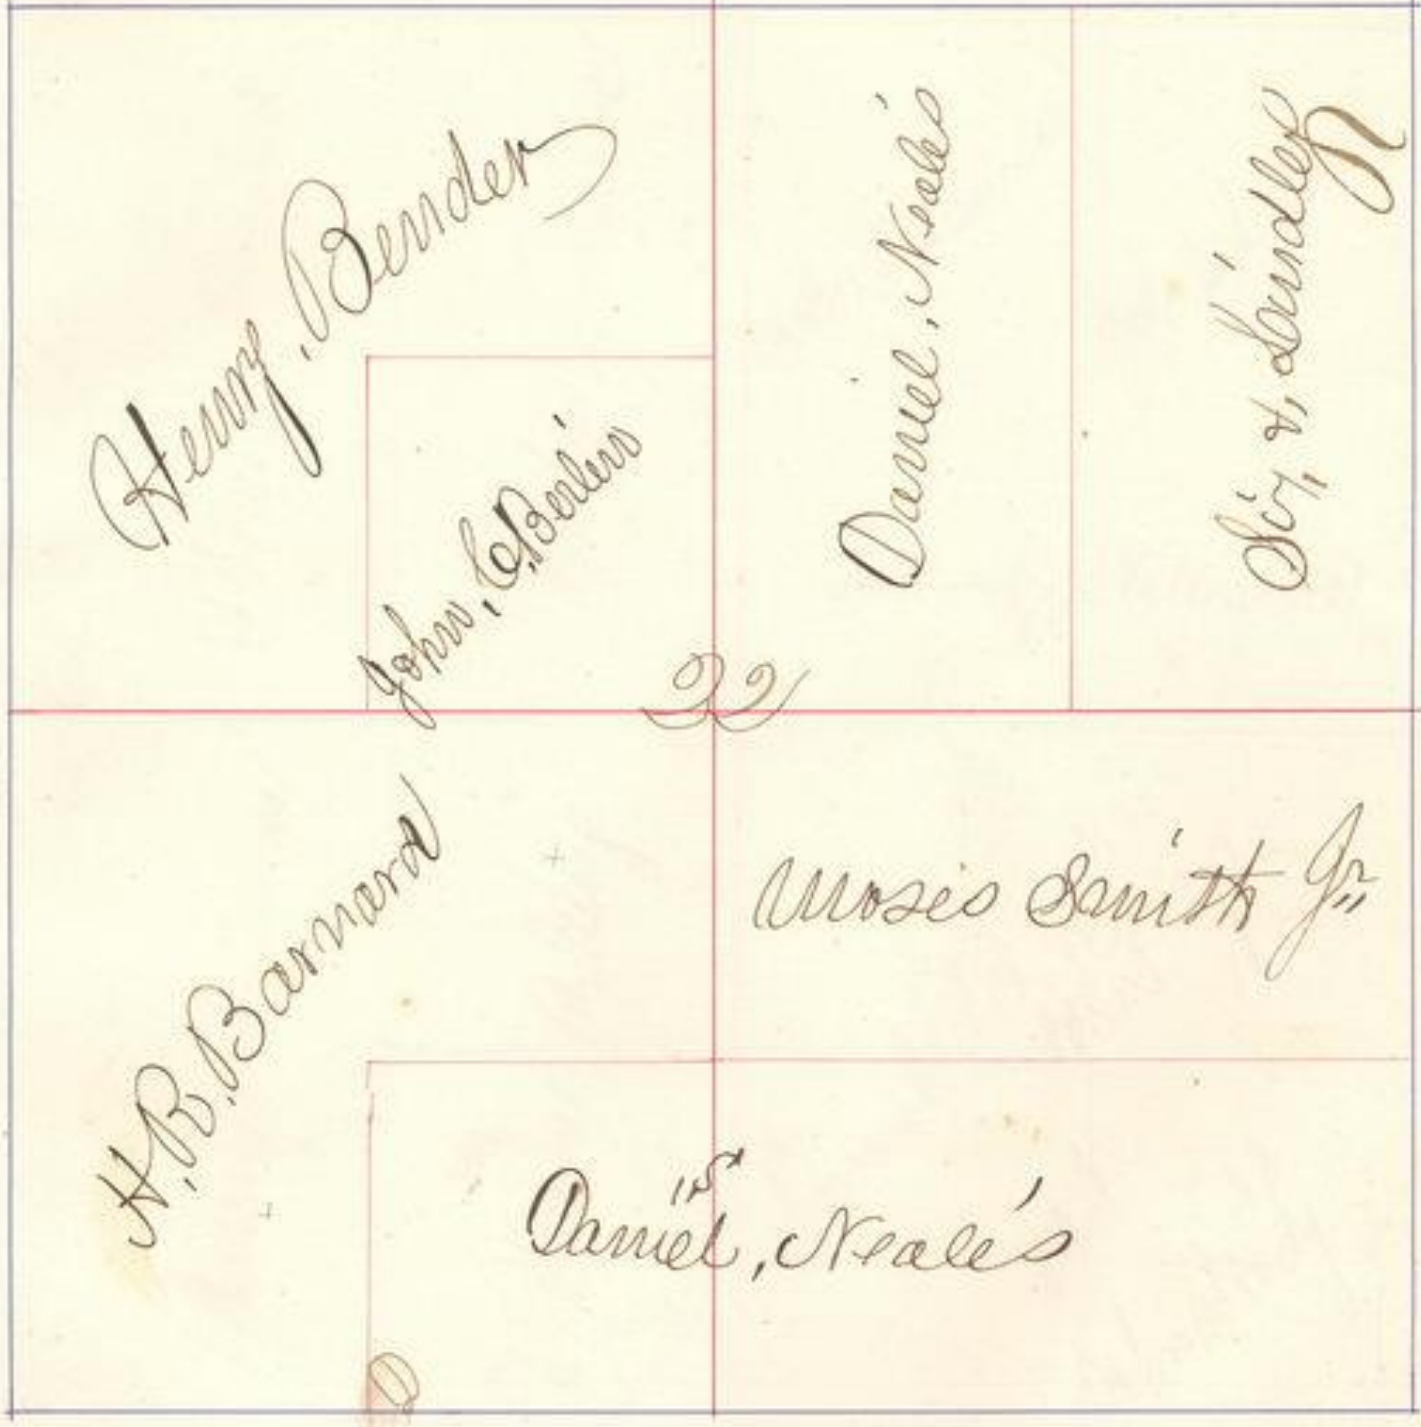 Henry, Bender
John, C, Berlin
Daniel, Neale's
& Lindley
22
H, R, Barnard
Moses Smith Jr
Daniel, Neale's